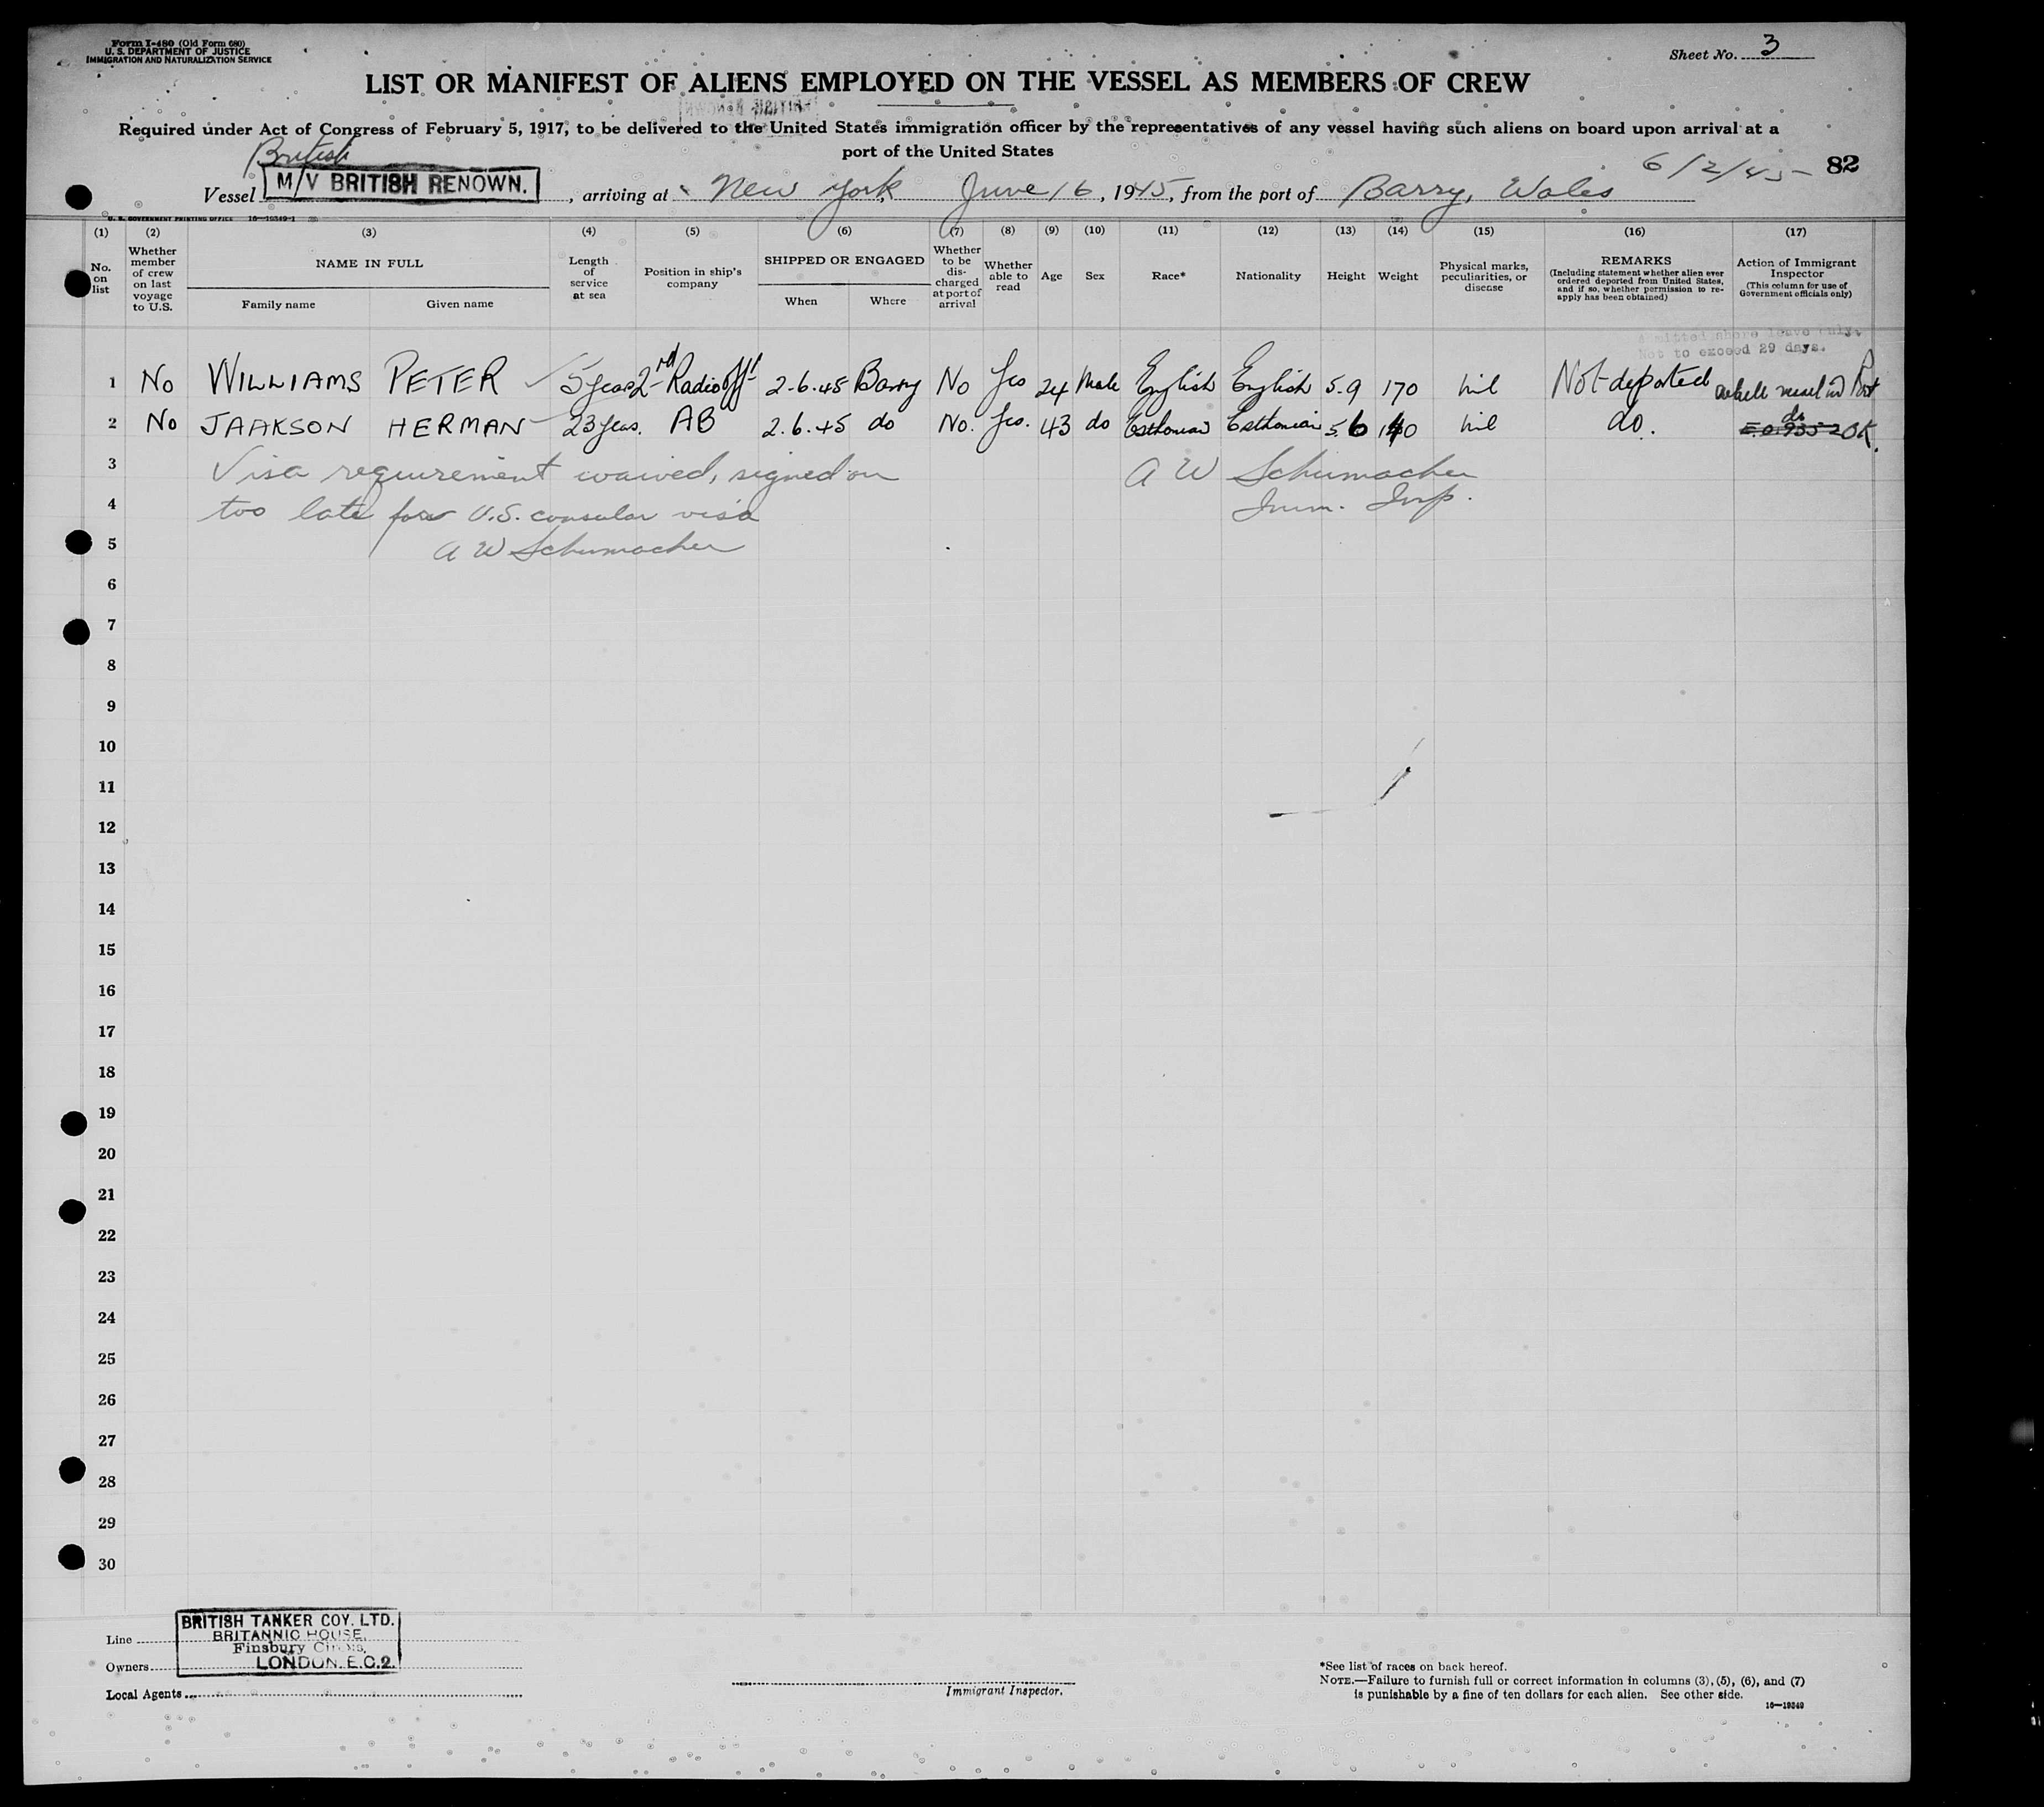 Form I-480 (Old Form 680)
U. S. DEPARTMENT OF JUSTICE
IMMIGRATION AND NATURALIZATION SERVICE
Sheet No. 3
LIST OR MANIFEST OF ALIENS EMPLOYED ON THE VESSEL AS MEMBERS OF CREW
Required under Act of Congress of February 5, 1917, to be delivered to the United States immigration officer by the representatives of any vessel having such aliens on board upon arrival at a
port of the United States
British
6/2/45 82
Vessel M/V BRITISH RENOWN. , arriving at New York, June 16, 1945, from the port of Barry, Wales
U. S. GOVERNMENT PRINTING OFFICE 16—19349-1
(1) (2) (3) (4) (5) (6) (7) (8) (9) (10) (11) (12) (13) (14) (15) (16) (17)
No. on list
Whether member of crew on last voyage to U.S.
NAME IN FULL
Family name Given name
Length of service at sea
Position in ship's company
SHIPPED OR ENGAGED
When Where
Whether to be discharged at port of arrival
Whether able to read
Age
Sex
Race*
Nationality
Height
Weight
Physical marks, peculiarities, or disease
REMARKS
(Including statement whether alien ever ordered deported from United States, and if so, whether permission to reapply has been obtained)
Action of Immigrant Inspector
(This column for use of Government officials only)
shore leave only.
Not to exceed 29 days.
1 No WILLIAMS PETER 5 years 2nd Radio Off. 2-6-45 Barry No Yes 24 Male English English 5.9 170 nil Not deported while vessel in Port
2 No JAAKSON HERMAN 23 years. AB 2.6.45 do No. Yes. 43 do Esthonian Esthonian 5.6 140 nil do. do
E.O. 9352 OK.
3 Visa requirement waived, signed on A W Schumacher
4 too late for U.S. consular visa Imm. Insp.
5 A W Schumacher
6
7
8
9
10
11
12
13
14
15
16
17
18
19
20
21
22
23
24
25
26
27
28
29
30
BRITISH TANKER COY. LTD.
BRITANNIC HOUSE,
Finsbury Circus,
LONDON. E.C.2.
Line
Owners
Local Agents
Immigrant Inspector.
*See list of races on back hereof.
NOTE.—Failure to furnish full or correct information in columns (3), (5), (6), and (7)
is punishable by a fine of ten dollars for each alien. See other side.
16—19349